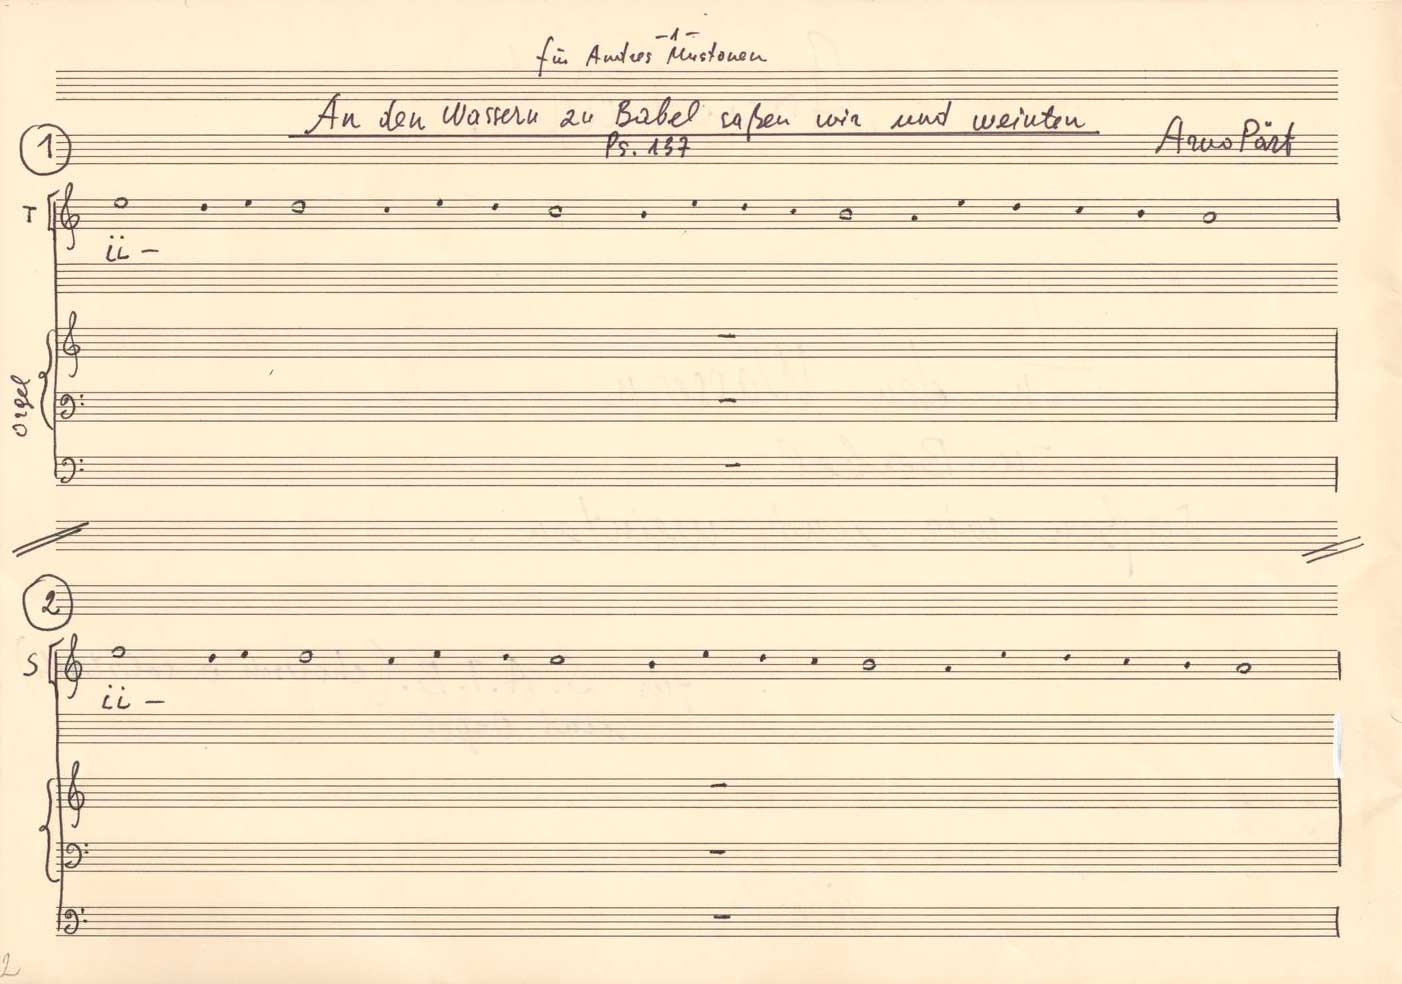 -1-
für Andres Mustonen
An den Wassern zu Babel saßen wir und weinten
Ps. 137
Arvo Pärt
1
T
ii –
Orgel
2
S
ii –
2